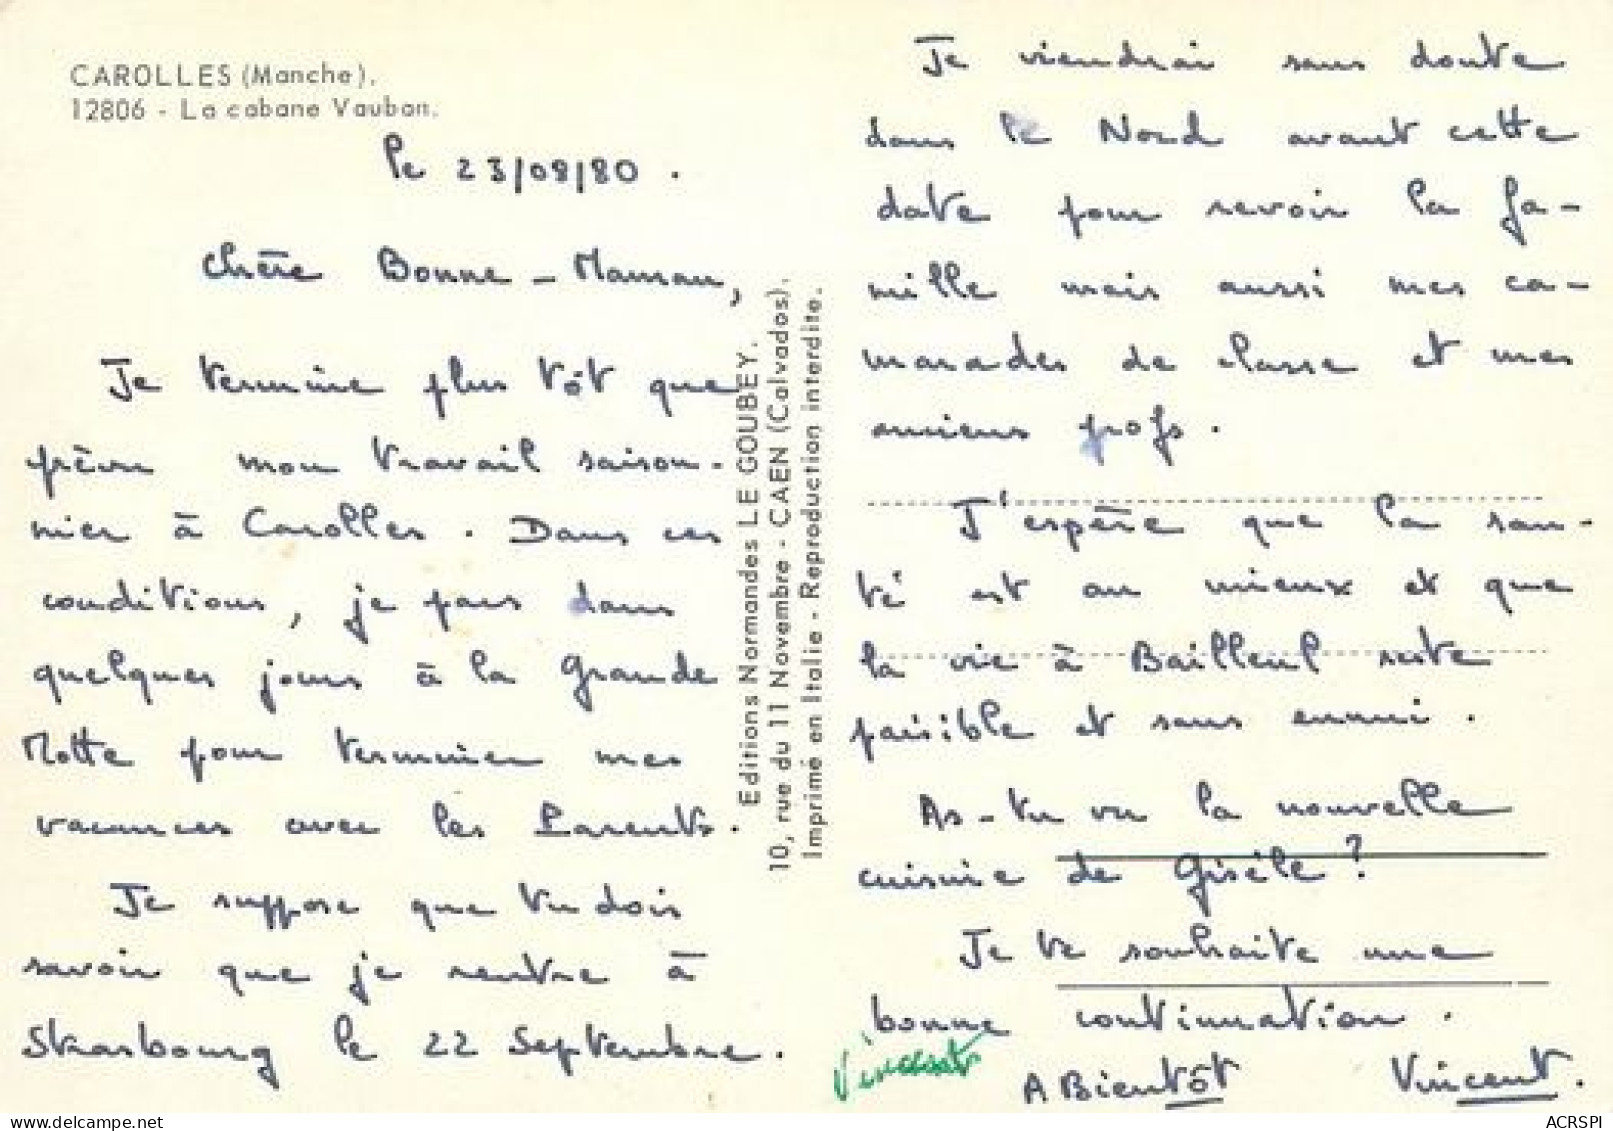 CAROLLES (Manche).
12806 - La cabane Vauban.
le 23/08/80.
Chère Bonne-Maman,
Je termine plus tôt que
prévu mon travail saison-
nier à Carolles. Dans ces
conditions, je pars dans
quelques jours à la Grande
Motte pour terminer mes
vacances avec les Parents.
Je suppose que tu dois
savoir que je rentre à
Strasbourg le 22 Septembre.
Editions Normandes LE GOUBEY.
10, rue du 11 Novembre - CAEN (Calvados).
Imprimé en Italie - Reproduction interdite.
Je viendrai sans doute
dans le Nord avant cette
date pour revoir la fa-
mille mais aussi mes ca-
marades de classe et mes
anciens profs.
J'espère que la san-
té est au mieux et que
la vie à Bailleul reste
paisible et sans ennui.
As-tu vu la nouvelle
cuisine de Gisèle?
Je te souhaite une
bonne continuation.
A Bientôt Vincent.
ACRSPI